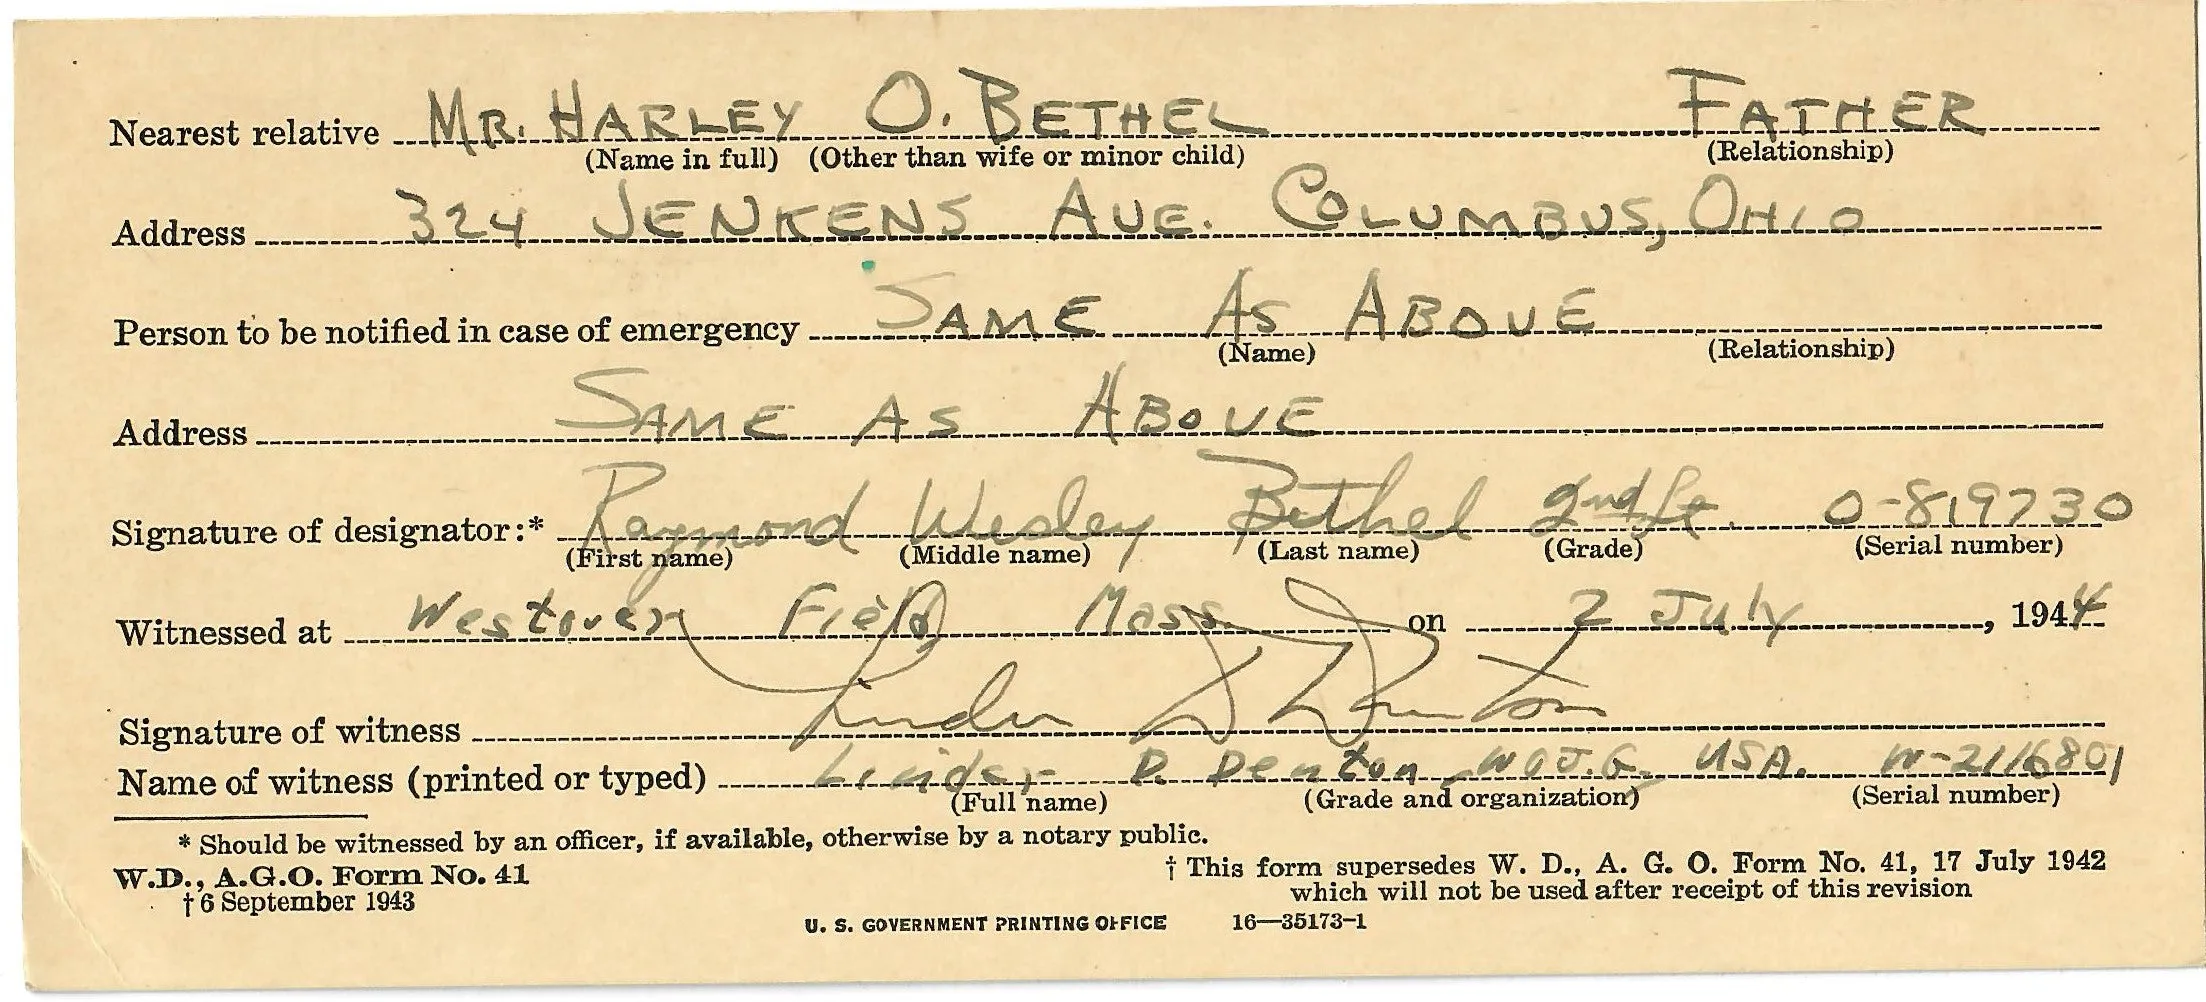 Nearest relative MR. HARLEY O. BETHEL FATHER
(Name in full) (Other than wife or minor child) (Relationship)
Address 324 JENKENS AVE. COLUMBUS, OHIO
Person to be notified in case of emergency SAME AS ABOVE
(Name) (Relationship)
Address SAME AS ABOVE
Signature of designator:* Raymond Wesley Bethel 2nd Lt. O-819730
(First name) (Middle name) (Last name) (Grade) (Serial number)
Witnessed at Westover Field Mass. on 2 July, 1944
Signature of witness
Name of witness (printed or typed) D. Denton WOJG, USA. W-2116801
(Full name) (Grade and organization) (Serial number)
* Should be witnessed by an officer, if available, otherwise by a notary public.
W.D., A.G.O. Form No. 41
† 6 September 1943
† This form supersedes W. D., A. G. O. Form No. 41, 17 July 1942
which will not be used after receipt of this revision
U. S. GOVERNMENT PRINTING OFFICE 16—35173-1